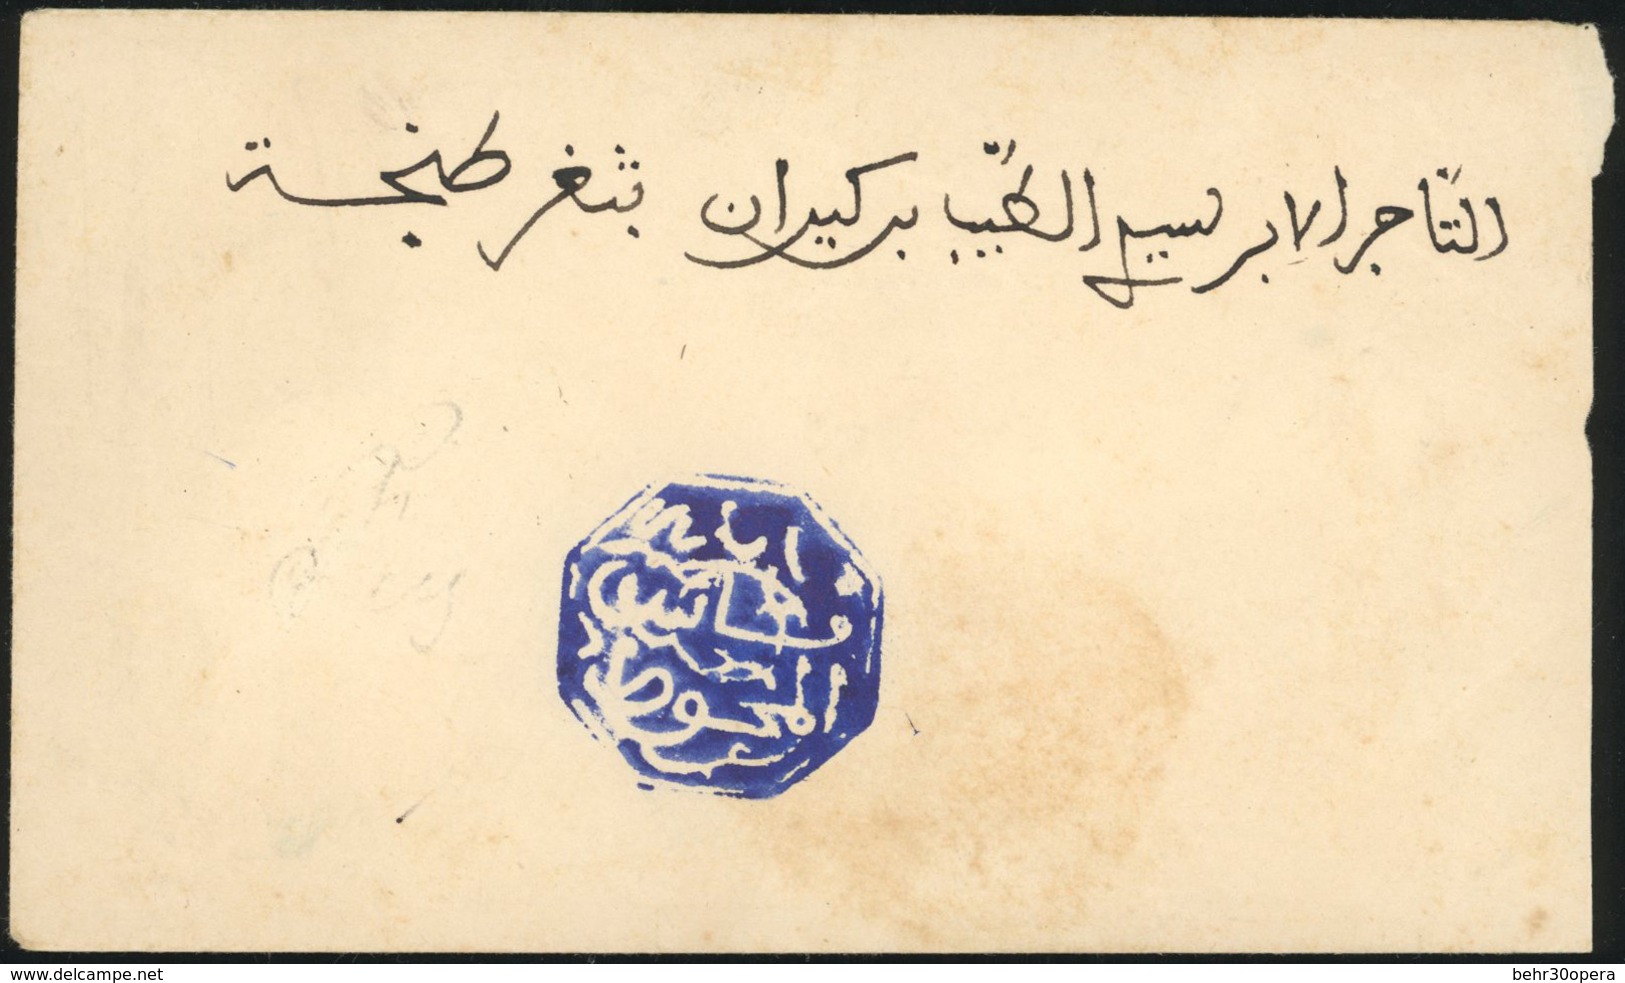 التاجر الابر سيد الطيب بركيران بثغر طنجة
فاس
المحوطة
www.delcampe.net
behr30opera